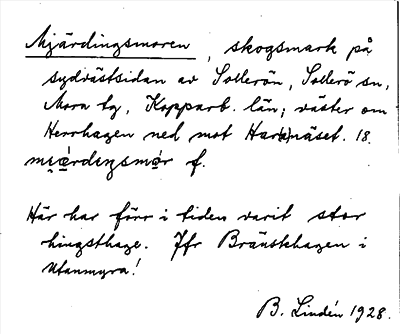 Mjärdingsmoren, skogsmark på
sydvästsidan av Sollerön, Sollerö sn,
Mora tg, Kopparb. län; väster om
Herrhagen ned mot Harknäset. 18.
f.
Här har förr i tiden varit stor
hingsthage. Jfr Bränskhagen i
Utanmyra!
B. Lindén 1928.